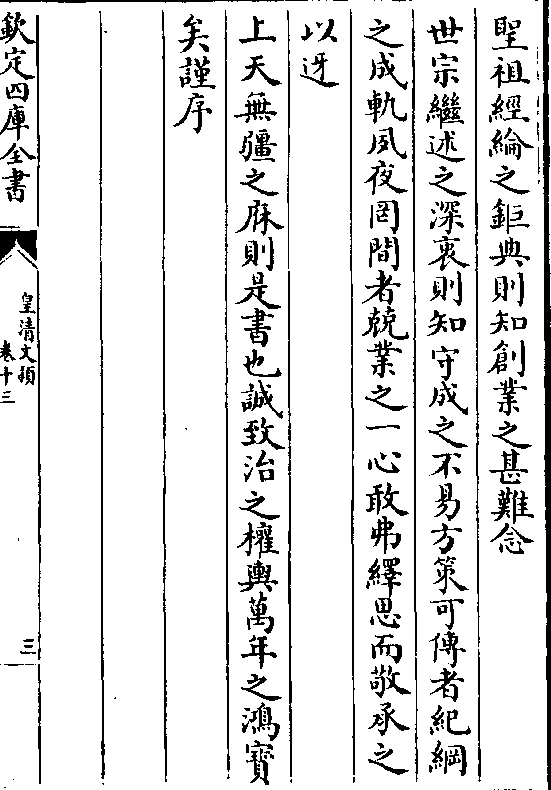 聖祖經綸之鉅典則知創業之甚難念
世宗繼述之深衷則知守成之不易方策可傳者紀綱
之成軌夙夜罔間者兢業之一心敢弗繹思而敬承之
以迓
上天無疆之庥則是書也誠致治之權輿萬年之鴻寳
矣謹序
欽定四庫全書
皇清文穎
卷十三
三